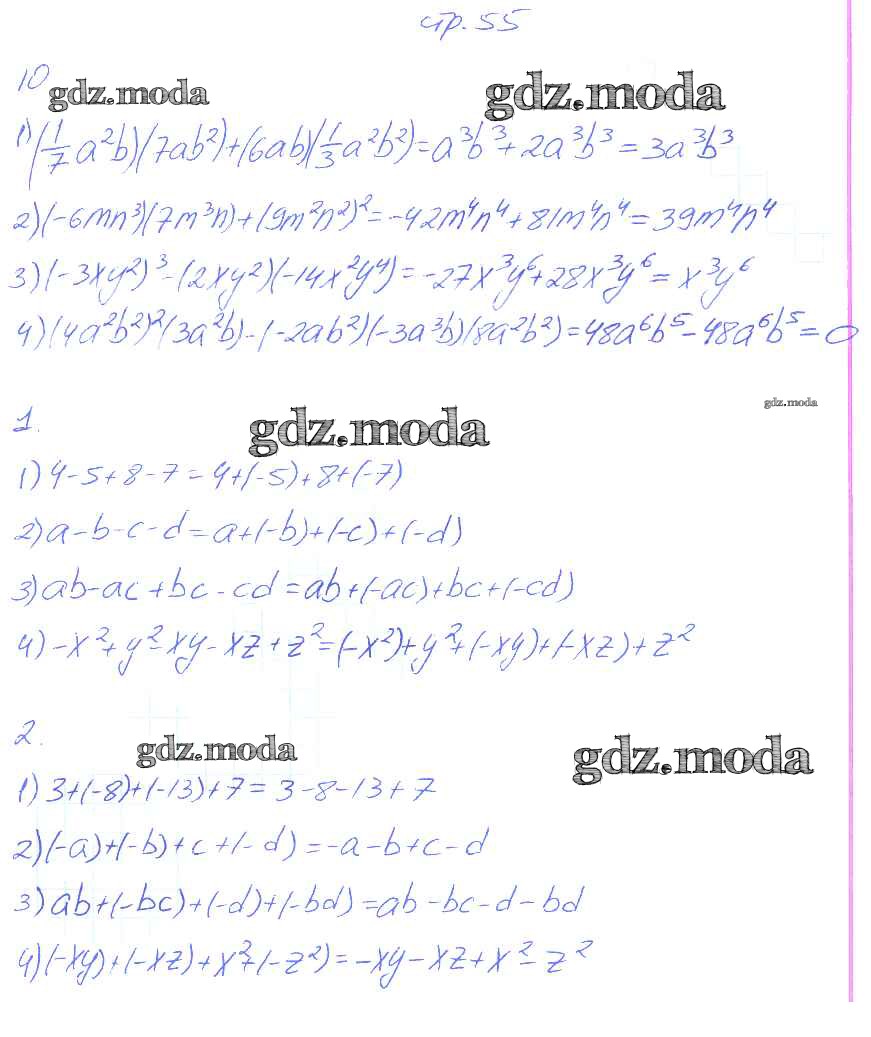 стр. 55
10
gdz.moda gdz.moda
1) (1/7 a²b)(7ab²)+(6ab)(1/3 a²b²)=a³b³+2a³b³=3a³b³
2) (-6mn³)(7m³n)+(9m²n²)²=-42m⁴n⁴+81m⁴n⁴=39m⁴n⁴
3) (-3xy²)³-(2xy²)(-14x²y⁴)=-27x³y⁶+28x³y⁶=x³y⁶
4) (4a²b²)²(3a²b)-(-2ab²)(-3a³b)(8a²b²)=48a⁶b⁵-48a⁶b⁵=0
gdz.moda
1. gdz.moda
1) 4-5+8-7=4+(-5)+8+(-7)
2) a-b-c-d=a+(-b)+(-c)+(-d)
3) ab-ac+bc-cd=ab+(-ac)+bc+(-cd)
4) -x²+y²-xy-xz+z²=(-x²)+y²+(-xy)+(-xz)+z²
2.
gdz.moda gdz.moda
1) 3+(-8)+(-13)+7=3-8-13+7
2) (-a)+(-b)+c+(-d)=-a-b+c-d
3) ab+(-bc)+(-d)+(-bd)=ab-bc-d-bd
4) (-xy)+(-xz)+x²+(-z²)=-xy-xz+x²-z²